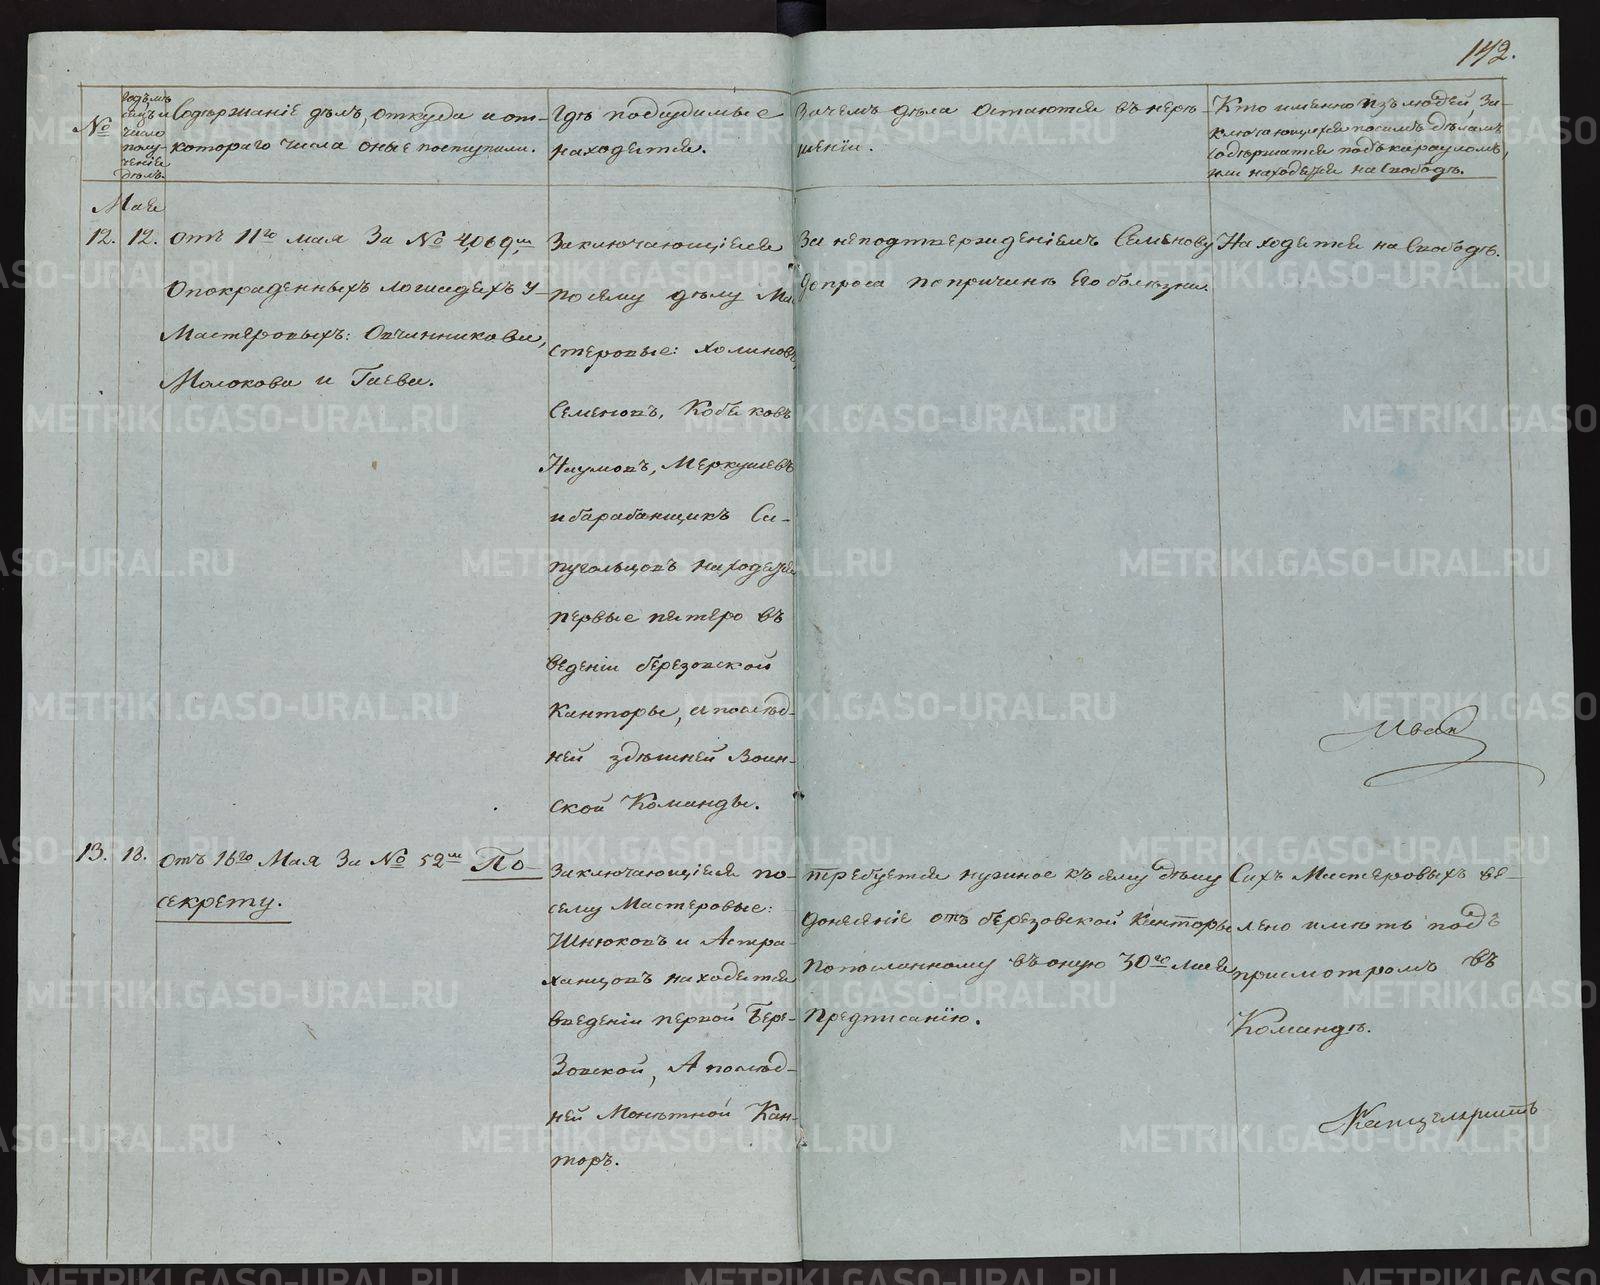 142.
№
Годъ, мѣ-
сяцъ и
число
полу-
ченія
дѣлъ.
Содержаніе дѣлъ, откуда и от-
котораго числа оные поступили.
Гдѣ подсудимые
находятся.
Зачемъ дѣла остаются въ нерѣ-
шеніи.
Кто именно изъ людей, за-
ключающихся посимъ дѣламъ
содержатся подъ карауломъ,
или находятся на свободѣ.
Мая
12. 12. Отъ 11го мая за № 4,069,мъ
О покраденныхъ лошадяхъ у
Мастеровыхъ: Овчинникова,
Молокова и Гаева.
Заключающіеся
посему дѣлу Ма-
стеровые: Холиновъ,
Семеновъ, Кобяковъ
Наумовъ, Меркушевъ
и барабанщикъ Са-
пугольцовъ находятся
первые пятеро въ
веденіи березовской
Канторы, а послѣд-
ней здѣшней Воин-
ской Команды.
За неподтвержденіемъ Семенову
допроса попричинѣ его болѣзни.
Находятся на свободѣ.
Иван
13. 18. Отъ 16го Мая за № 52мъ По-
секрету.
Заключающіеся по-
сему Мастеровые:
Шнюковъ и Астра-
ханцовъ находятся
введеніи первой Бере-
зовской, а послѣд-
ней Монетной Кан-
торъ.
требуется нужное къ сему дѣлу
донесеніе отъ березовской Канторы
попосланному въ оную 30го мая
Предписанію.
Сихъ Мастеровыхъ ве-
лено имѣть подъ
присмотромъ въ
Командѣ.
Канцеляристъ
METRIKI.GASO-URAL.RU